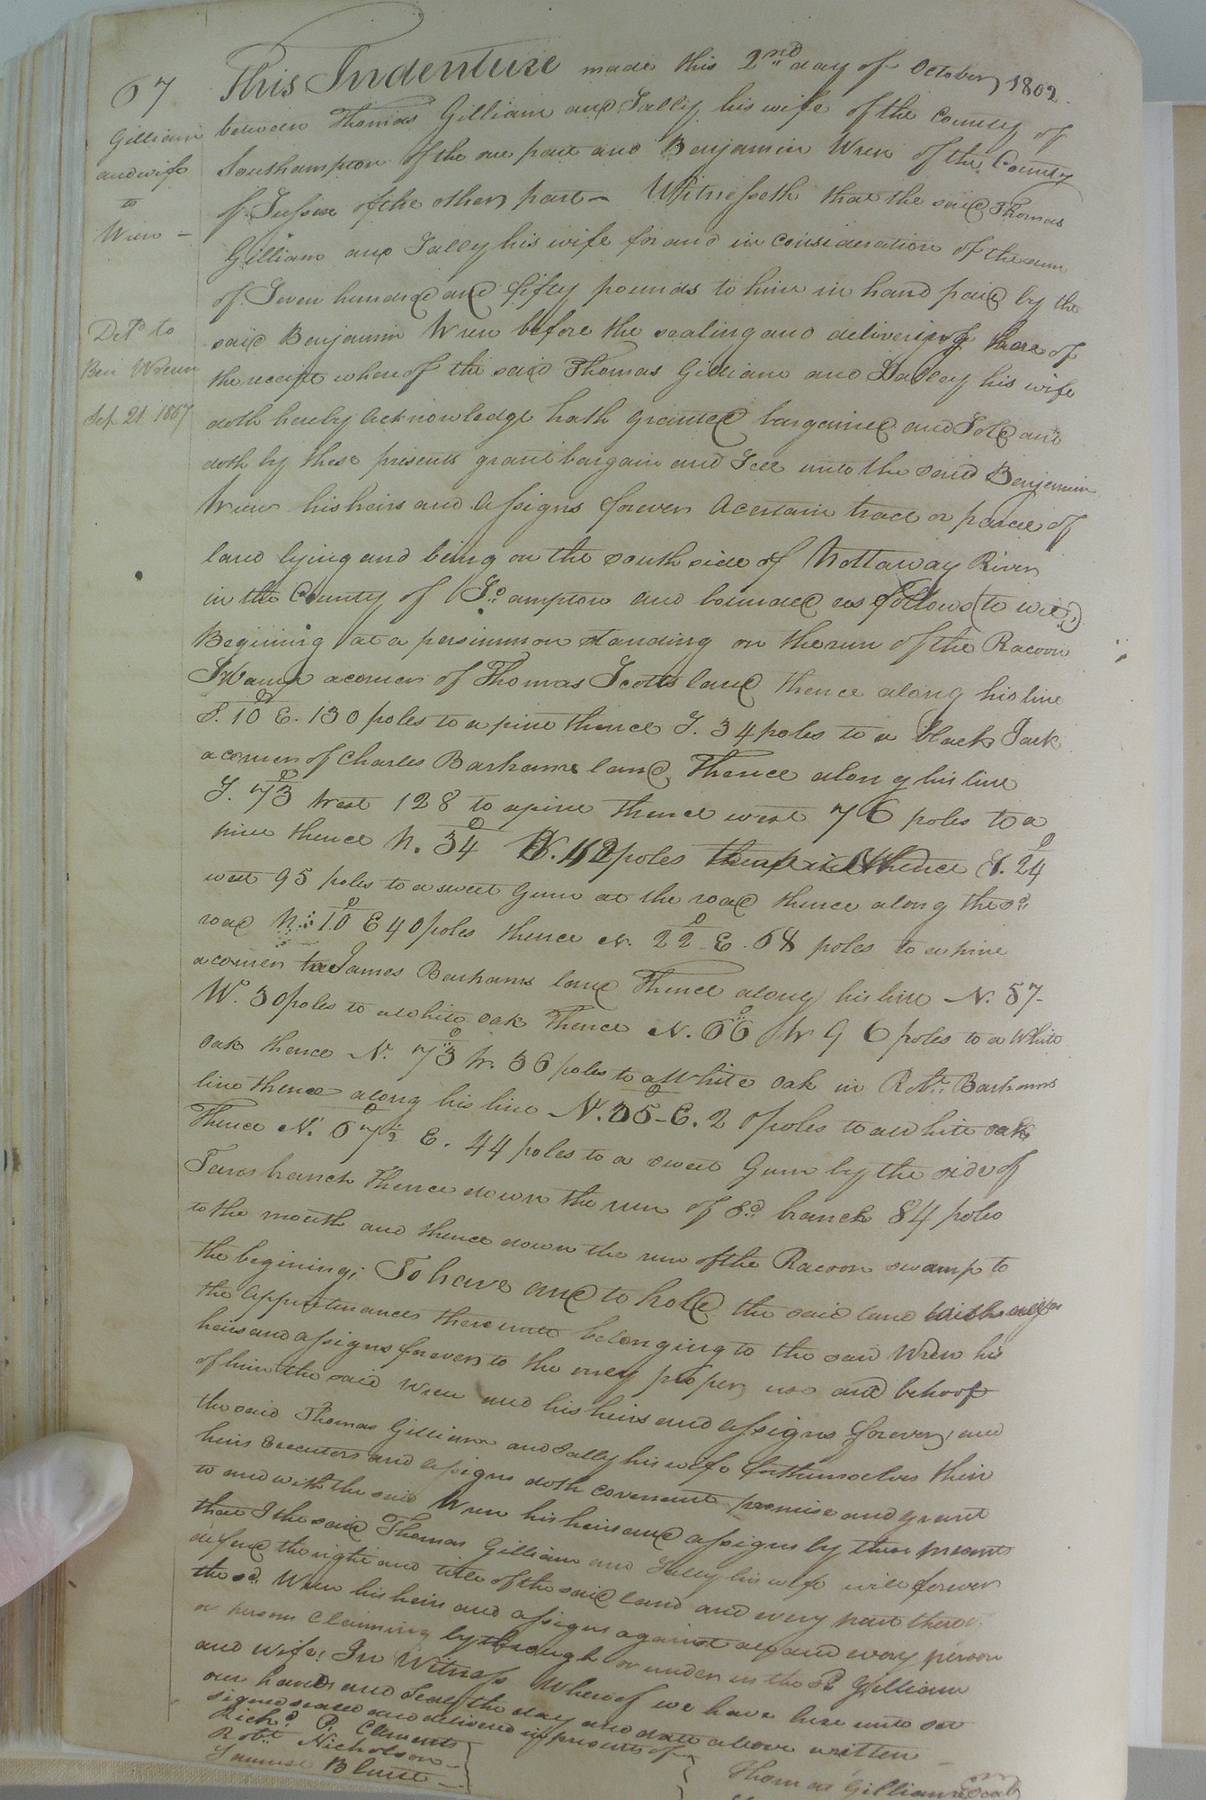 67
Gilliam
and wife
to
Wren –
Del.d to
Ben Wrenn
Sep. 21. 1867
This Indenture made this 2nd day of October 1802.
between Thomas Gilliam and Sally his wife of the County of
Southampton of the one part and Benjamin Wren of the County
of Sussex of the other part – Witnesseth that the said Thomas
Gilliam and Sally his wife for and in consideration of the sum
of Seven hundred and fifty pounds to him in hand paid by the
said Benjamin Wren before the sealing and delivering thereof
the receipt whereof the said Thomas Gilliam and Salley his wife
doth hereby acknowledge hath granted bargained and Sold and
doth by these presents grant bargain and Sell unto the said Benjamin
Wren his heirs and assigns forever a certain tract or parcel of
land lying and being on the south side of Nottaway River
in the County of So.ampton and bounded as follows (to wit,)
Begining at a persimmon standing on the run of the Racoon
Swamp a corner of Thomas Scotts land thence along his line
S. 10° E. 130 poles to a pine thence S. 34 poles to a black Jack
a corner of Charles Barhams land, Thence along his line
S. 73° West 128 to a pine thence west 76 poles to a
pine thence N. 34° W. 42 poles thence S. 24°
west 95 poles to a sweet Gum at the road thence along the sd.
road N. 10° E 40 poles thence N. 22° E. 68 poles to a pine
a corner to James Barhams land Thence along his line N. 57-
W. 30 poles to a white oak Thence N. 66° W 96 poles to a White
oak thence N. 73° W. 36 poles to a White oak in Robt. Barhams
line thence along his line N. 35° E. 20 poles to a white oak
Thence N. 67½° E. 44 poles to a sweet Gum by the side of
branch thence down the run of sd. branch 84 poles
to the mouth and thence down the run of the Racoon swamp to
the begining; To have and to hold the said land with all
the appurtenances thereunto belonging to the said Wren his
heirs and assigns forever to the only proper use and behoof
of him the said Wren and his heirs and assigns forever, and
the said Thomas Gilliam and Sally his wife for themselves their
heirs Executors and assigns doth covenant promise and grant
to and with the said Wren his heirs and assigns by these presents
that I the said Thomas Gilliam and Sally his wife will forever
defend the right and title of the said land and every part thereof
the sd. Wren his heirs and assigns against all and every person
or persons Claiming by through or under us the sd. Gilliam
and wife, In Witness Whereof we have here unto set
our hands and Seals the day and date above written –
signed sealed and delivered in presents of
Richd. P. Clements
Robt. Nicholson
Samuel Blunt
Thomas Gilliam Seal